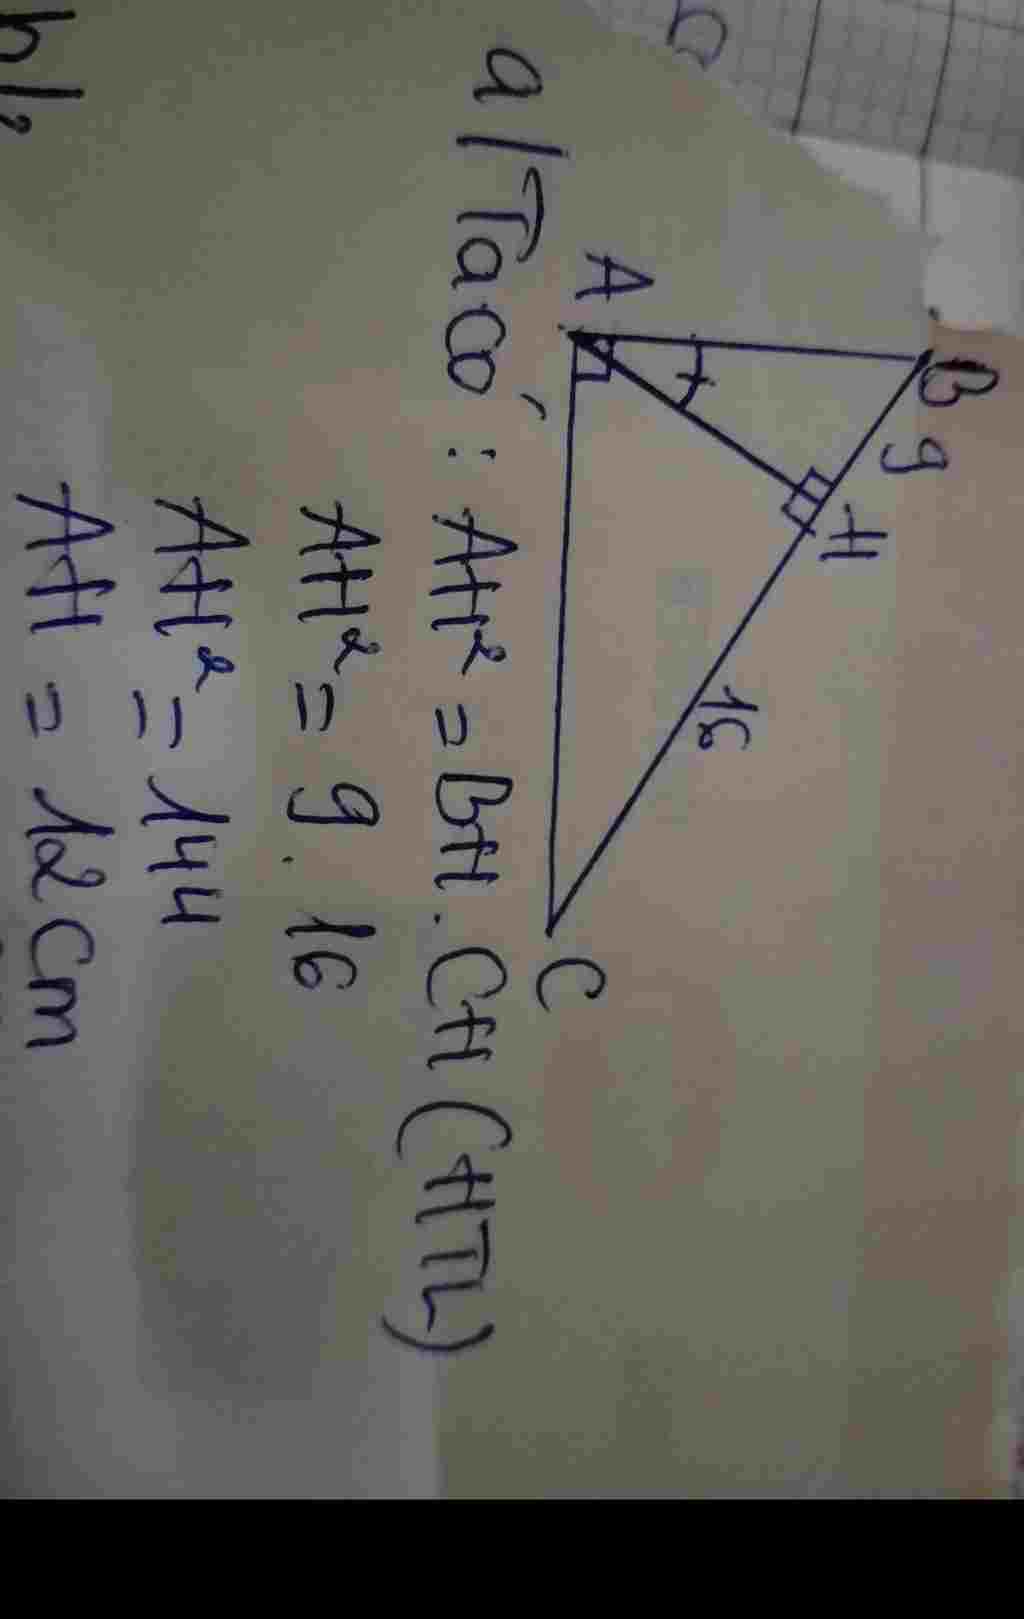 B
9
H
16
A
C
a/ Ta có: AH² = BH. CH (HTL)
AH² = 9. 16
AH² = 144
AH = 12 cm